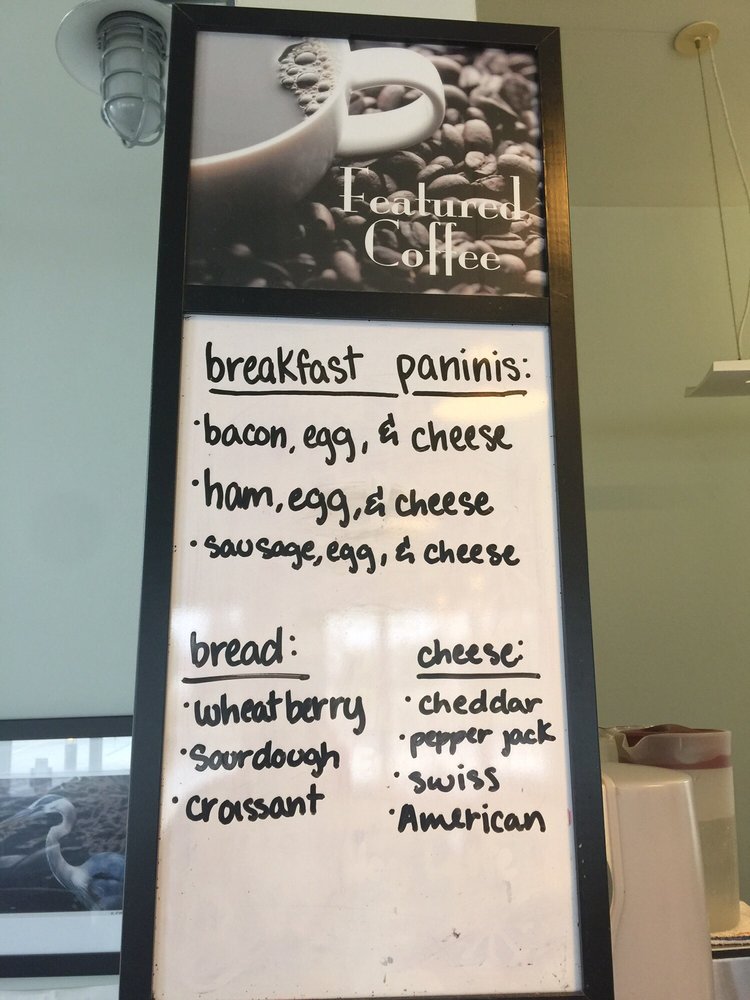 Featured
Coffee
breakfast paninis:
·bacon, egg, & cheese
·ham, egg, & cheese
·sausage, egg, & cheese
bread:
·wheatberry
·sourdough
·croissant
cheese:
·cheddar
·pepper jack
·swiss
·American